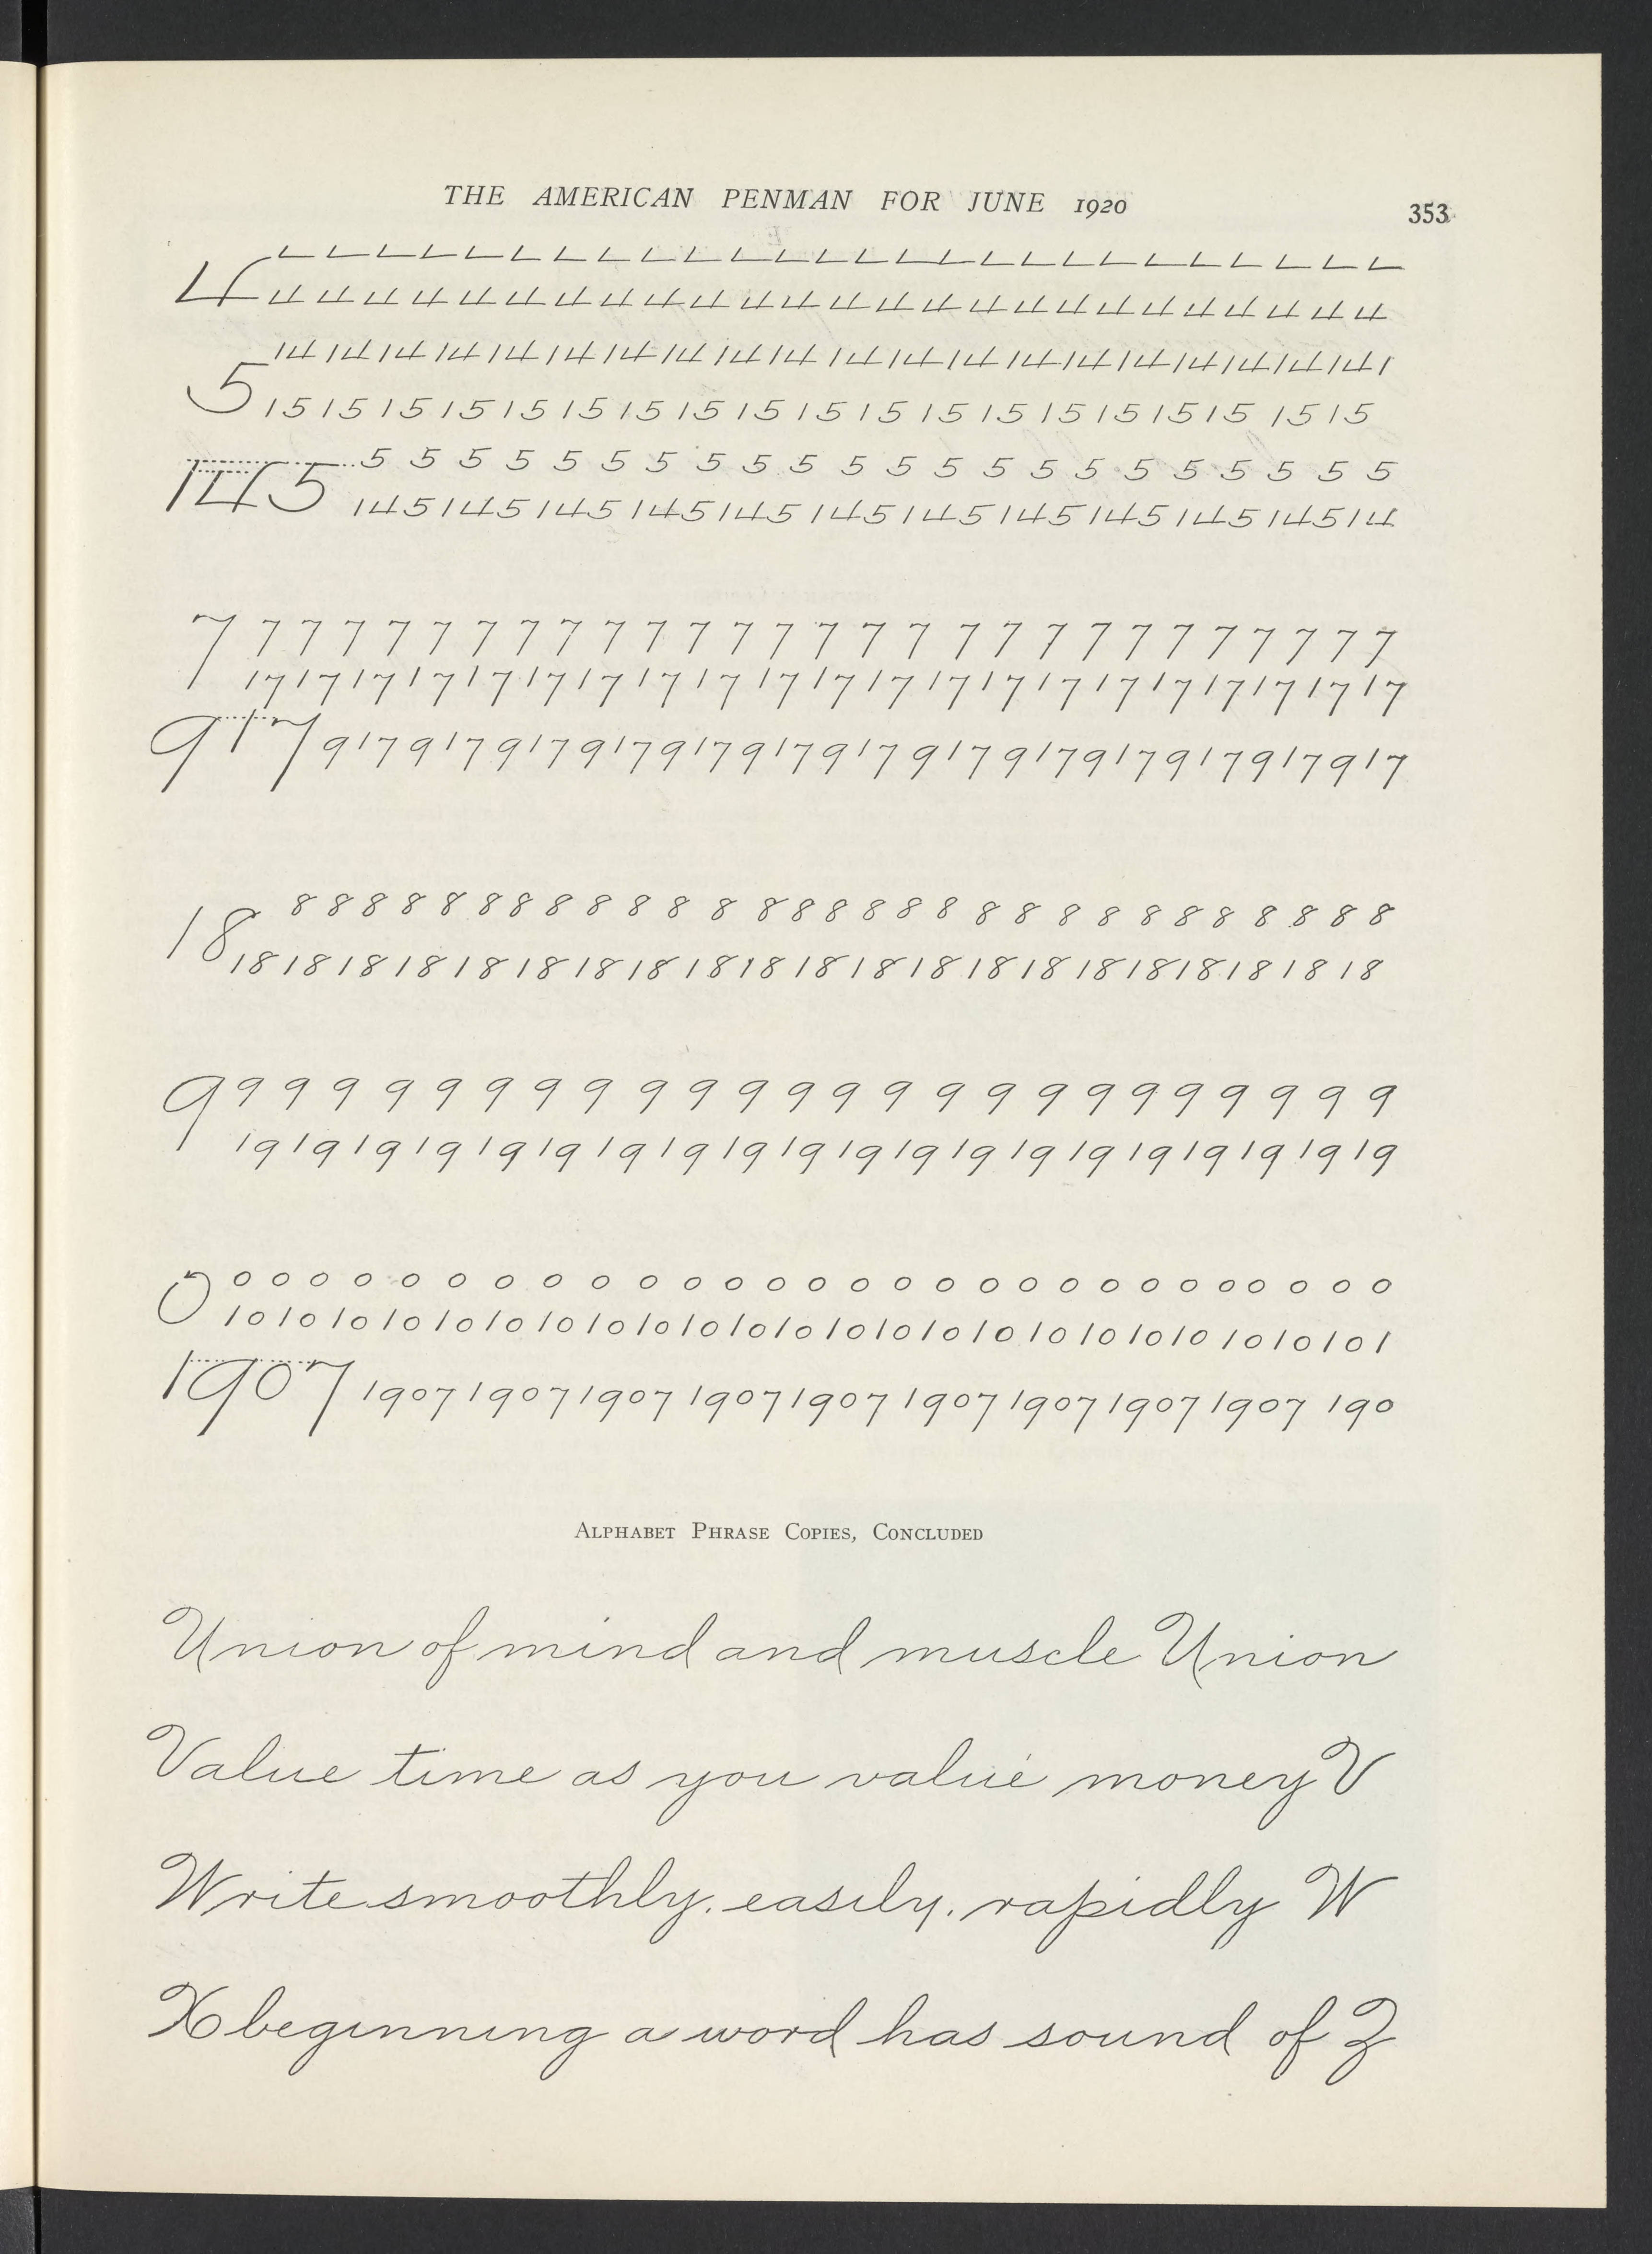 THE AMERICAN PENMAN FOR JUNE 1920
353
L L L L L L L L L L L L L L L L L L L L L L L L L L
4 4 4 4 4 4 4 4 4 4 4 4 4 4 4 4 4 4 4 4 4 4 4 4 4 4
14 14 14 14 14 14 14 14 14 14 14 14 14 14 14 14 14 14 14 14 1
5 15 15 15 15 15 15 15 15 15 15 15 15 15 15 15 15 15 15 15
5 5 5 5 5 5 5 5 5 5 5 5 5 5 5 5 5 5 5 5 5 5
145 145 145 145 145 145 145 145 145 145 145 145 14
7 7 7 7 7 7 7 7 7 7 7 7 7 7 7 7 7 7 7 7 7 7 7 7 7 7 7 7
17 17 17 17 17 17 17 17 17 17 17 17 17 17 17 17 17 17 17 17 17
917 917 917 917 917 917 917 917 917 917 917 917 917 917
8 8 8 8 8 8 8 8 8 8 8 8 8 8 8 8 8 8 8 8 8 8 8 8 8 8 8 8 8
18 18 18 18 18 18 18 18 18 18 18 18 18 18 18 18 18 18 18 18 18 18
9 9 9 9 9 9 9 9 9 9 9 9 9 9 9 9 9 9 9 9 9 9 9 9 9
19 19 19 19 19 19 19 19 19 19 19 19 19 19 19 19 19 19 19 19
0 0 0 0 0 0 0 0 0 0 0 0 0 0 0 0 0 0 0 0 0 0 0 0 0 0 0 0 0
10 10 10 10 10 10 10 10 10 10 10 10 10 10 10 10 10 10 10 10 10 10 10 1
1907 1907 1907 1907 1907 1907 1907 1907 1907 1907 190
ALPHABET PHRASE COPIES, CONCLUDED
Union of mind and muscle Union
Value time as you value money V
Write smoothly, easily, rapidly W
X beginning a word has sound of Z